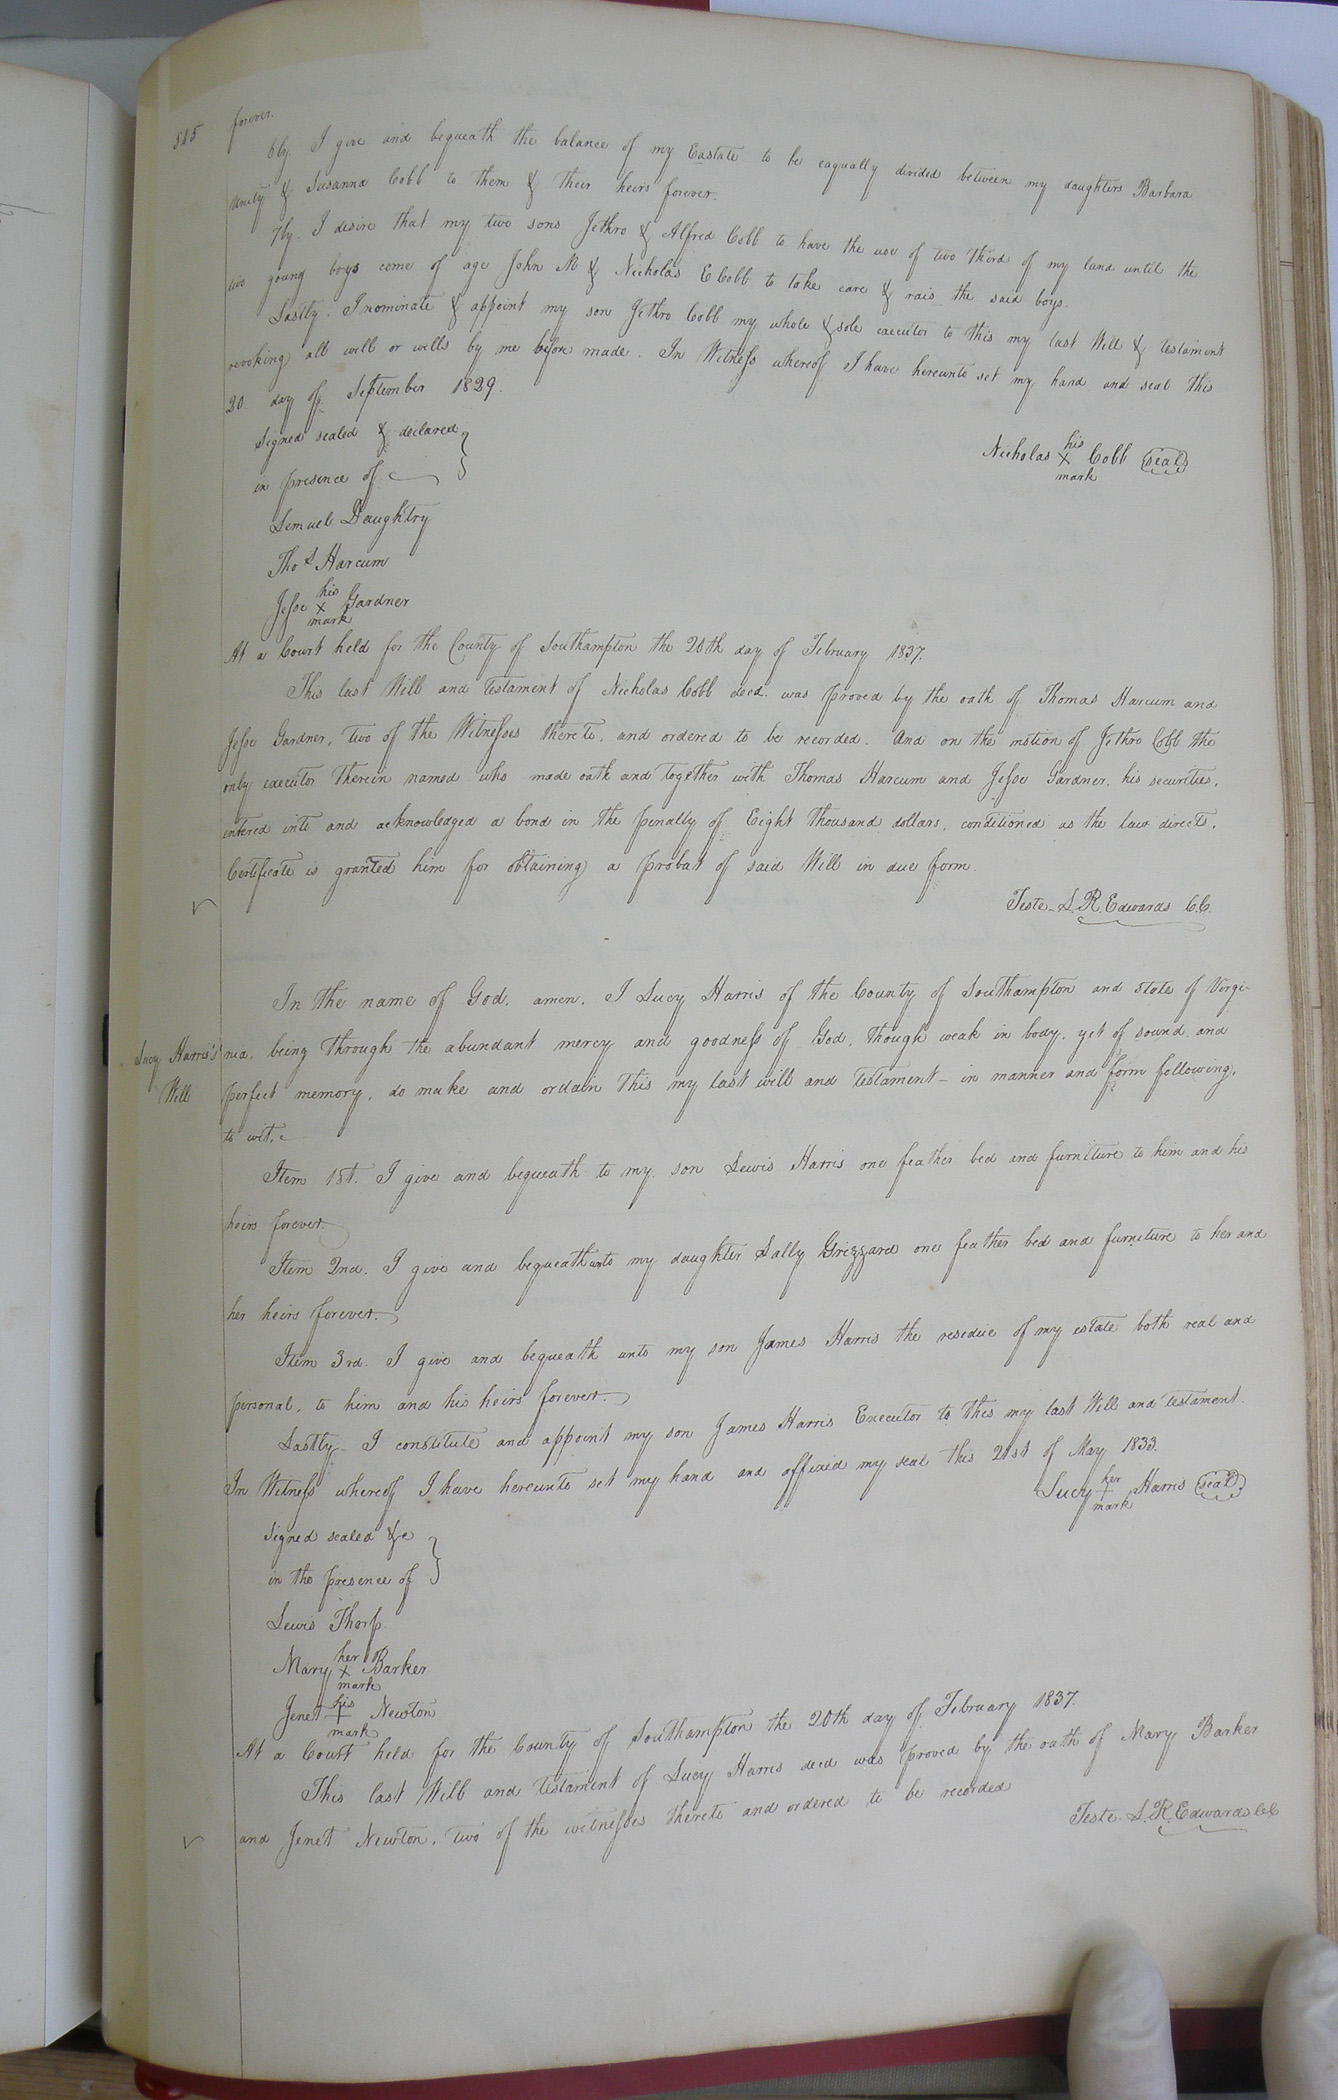 515 forever.
6ly. I give and bequeath the balance of my Eastate to be eaqually divided between my daughters Barbara
Unity & Susanna Cobb to them & their heirs forever.
7ly. I desire that my two sons Jethro & Alfred Cobb to have the use of two third of my land until the
two young boys come of age John M & Nicholas E Cobb to take care & rais the said boys.
Lastly. I nominate & appoint my son Jethro Cobb my whole & sole executor to this my last Will & testament
revoking all will or wills by me before made. In Witness whereof I have hereunto set my hand and seal this
20 day of September 1829.
Signed sealed & declared
in presence of
Nicholas his X mark Cobb (seal)
Lemuel Daughtry
Thos Harcum
Jesse his X mark Gardner
At a Court held for the County of Southampton the 20th day of February 1837.
This last Will and testament of Nicholas Cobb decd. was proved by the oath of Thomas Harcum and
Jesse Gardner, two of the Witnesses thereto, and ordered to be recorded. And on the motion of Jethro Cobb the
only executor therein named who made oath and together with Thomas Harcum and Jesse Gardner, his securities,
entered into and acknowledged a bond in the penalty of Eight thousand dollars, conditioned as the law directs,
Certificate is granted him for obtaining a probat of said Will in due form.
Teste S.R. Edwards C.C.
In the name of God, amen, I Lucy Harris of the County of Southampton and state of Virgi-
Lucy Harris's nia, being through the abundant mercy and goodness of God, though weak in body, yet of sound and
Will perfect memory, do make and ordain this my last will and testament in manner and form following,
to wit,
Item 1st. I give and bequeath to my son Lewis Harris one feather bed and furniture to him and his
heirs forever.
Item 2nd. I give and bequeath unto my daughter Sally Grizzard one feather bed and furniture to her and
her heirs forever.
Item 3rd. I give and bequeath unto my son James Harris the residue of my estate both real and
personal, to him and his heirs forever.
Lastly. I constitute and appoint my son James Harris Executor to this my last Will and testament.
In Witness whereof I have hereunto set my hand and affixed my seal this 21st of May 1833.
Lucy her + mark Harris (seal)
Signed sealed &c
in the presence of
Lewis Thorp
Mary her X mark Barker
Jenet his + mark Newton
At a Court held for the County of Southampton the 20th day of February 1837.
This last Will and testament of Lucy Harris decd was proved by the oath of Mary Barker
and Jenet Newton, two of the witnesses thereto and ordered to be recorded
Teste S.R. Edwards C.C